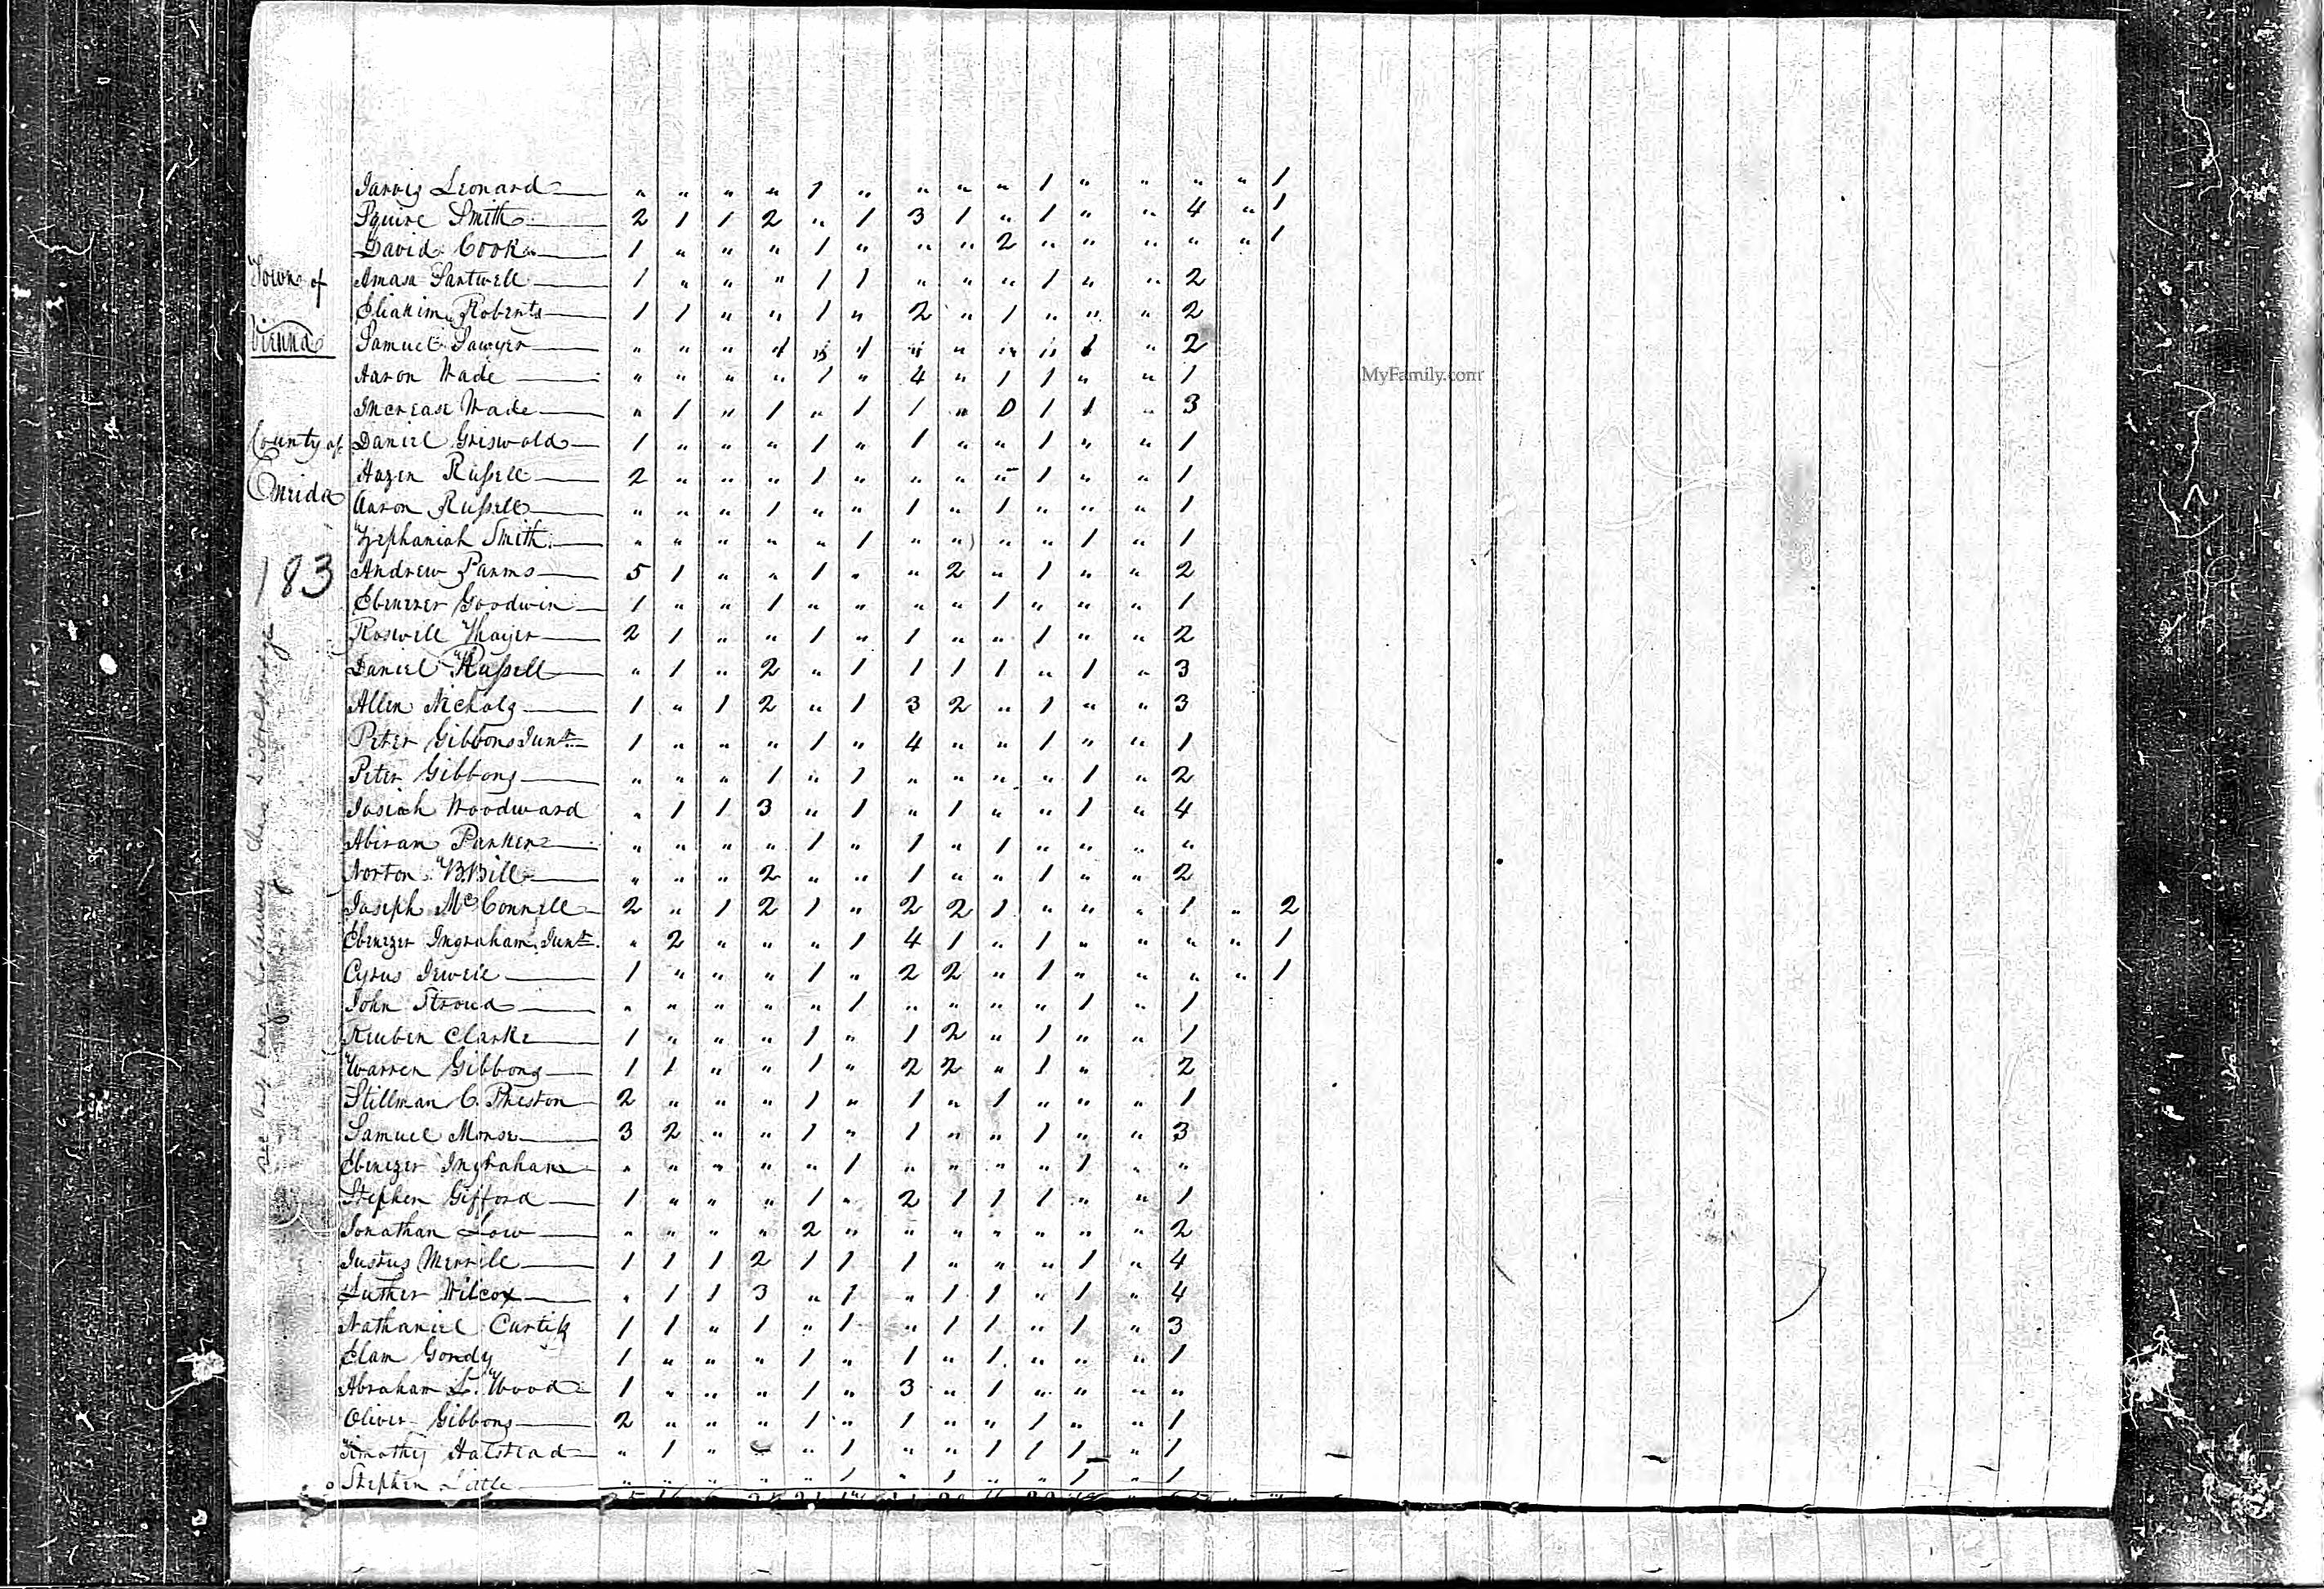 Town of
Vienna
County of
Oneida
183
Jarvis Leonard " " " " 1 " " " " 1 " " " " 1
Squire Smith 2 1 1 2 " 1 3 1 " 1 " " 4 " 1
David Cook 1 " " " 1 " " " 2 " " " " " 1
Amasa Sartwell 1 " " " 1 1 " " " 1 " " 2
Eliakim Roberts 1 1 " " 1 " 2 " 1 " " " 2
Samuel Sawyer " " " 1 " 1 " " " " 1 " 2
Aaron Wade " " " " 1 " 4 " 1 1 " " 1
Increase Wade " 1 " 1 " 1 1 " 0 1 1 " 3
Daniel Griswold 1 " " " 1 " 1 " " 1 " " 1
Hazen Russell 2 " " " 1 " " " " 1 " " 1
Aaron Russell " " " 1 " " 1 " 1 " " " 1
Zephaniah Smith " " " " " 1 " " " " 1 " 1
Andrew Parms 5 1 " " 1 " " 2 " 1 " " 2
Ebenezer Goodwin 1 " " 1 " " " " 1 " " " 1
Roswell Thayer 2 1 " " 1 " 1 " " 1 " " 2
Daniel Russell " 1 " 2 " 1 1 1 1 " 1 " 3
Allen Nichols 1 " 1 2 " 1 3 2 " 1 " " 3
Peter Gibbons Junr 1 " " " 1 " 4 " " 1 " " 1
Peter Gibbons " " " 1 " 1 " " " " 1 " 2
Josiah Woodward " 1 1 3 " 1 " 1 " " 1 " 4
Abiram Parker " " " " 1 " 1 " 1 " " " "
Norton B. Bill " " " 2 " " 1 " " 1 " " 2
Joseph McConnell 2 " 1 2 1 " 2 2 1 " " " 1 " 2
Ebenezer Ingraham Junr " 2 " " " 1 4 1 " 1 " " " " 1
Cyrus Jewell 1 " " " 1 " 2 2 " 1 " " " " 1
John Stroud " " " " " 1 " " " " 1 " 1
Reuben Clarke 1 " " " 1 " 1 2 " 1 " " 1
Warren Gibbons 1 1 " " 1 " 2 2 " 1 " 2
Stillman C. Preston 2 " " " 1 " 1 " 1 " " " 1
Samuel Morse 3 2 " " 1 " 1 " " 1 " " 3
Ebenezer Ingraham " " " " " 1 " " " " 1 " "
Stephen Gifford 1 " " " 1 " 2 1 1 1 " " 1
Jonathan Low " " " " 2 " " " " " " " 2
Justus Merrill 1 1 1 2 1 1 1 " " " 1 " 4
Luther Wilcox " 1 1 3 " 1 " 1 1 " 1 " 4
Nathaniel Curtis 1 1 " 1 " 1 " 1 1 " 1 " 3
Elam Gondy 1 " " " 1 " 1 " 1 " " " 1
Abraham L. Wood 1 " " " 1 " 3 " 1 " " " "
Oliver Gibbons 2 " " " 1 " 1 " " 1 " " 1
Timothy Halstead " 1 " " " 1 " " 1 1 1 " 1
Stephen Little " " " " " 1 " 1 " " 1 " 1
MyFamily.com